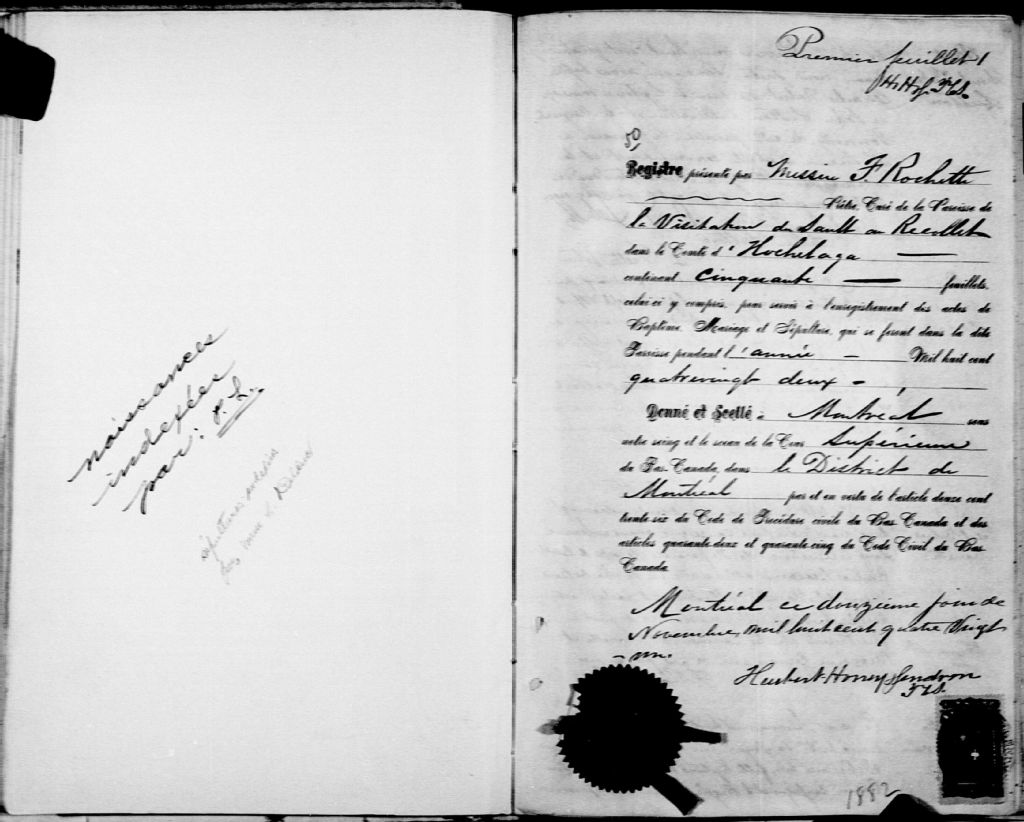 naissances
indexées
par: P. L.
sépultures indexées
par
Premier feuillet 1
H. H. G.
50
Registre présenté par Messire F. Rochette
Prêtre, Curé de la Paroisse de
la Visitation du Sault au Recollet
dans le Comté d'Hochelaga
contenant Cinquante feuillets,
celui-ci y compris, pour servir à l'enregistrement des actes de
Baptême, Mariage et Sépulture, qui se feront dans la dite
Paroisse pendant l'année Mil huit cent
quatrevingt deux -
Donné et Scellé à Montréal sous
notre seing et le sceau de la Cour Supérieure
du Bas-Canada, dans le District de
Montréal par et en vertu de l'article douze cent
trente-six du Code de Procédure civile du Bas Canada et des
articles quarante-deux et quarante-cinq du Code Civil du Bas-
Canada
Montréal ce douzieme jour de
Novembre, mil huit cent quatre Vingt
- un.
Huibert Honey Gendron
1882